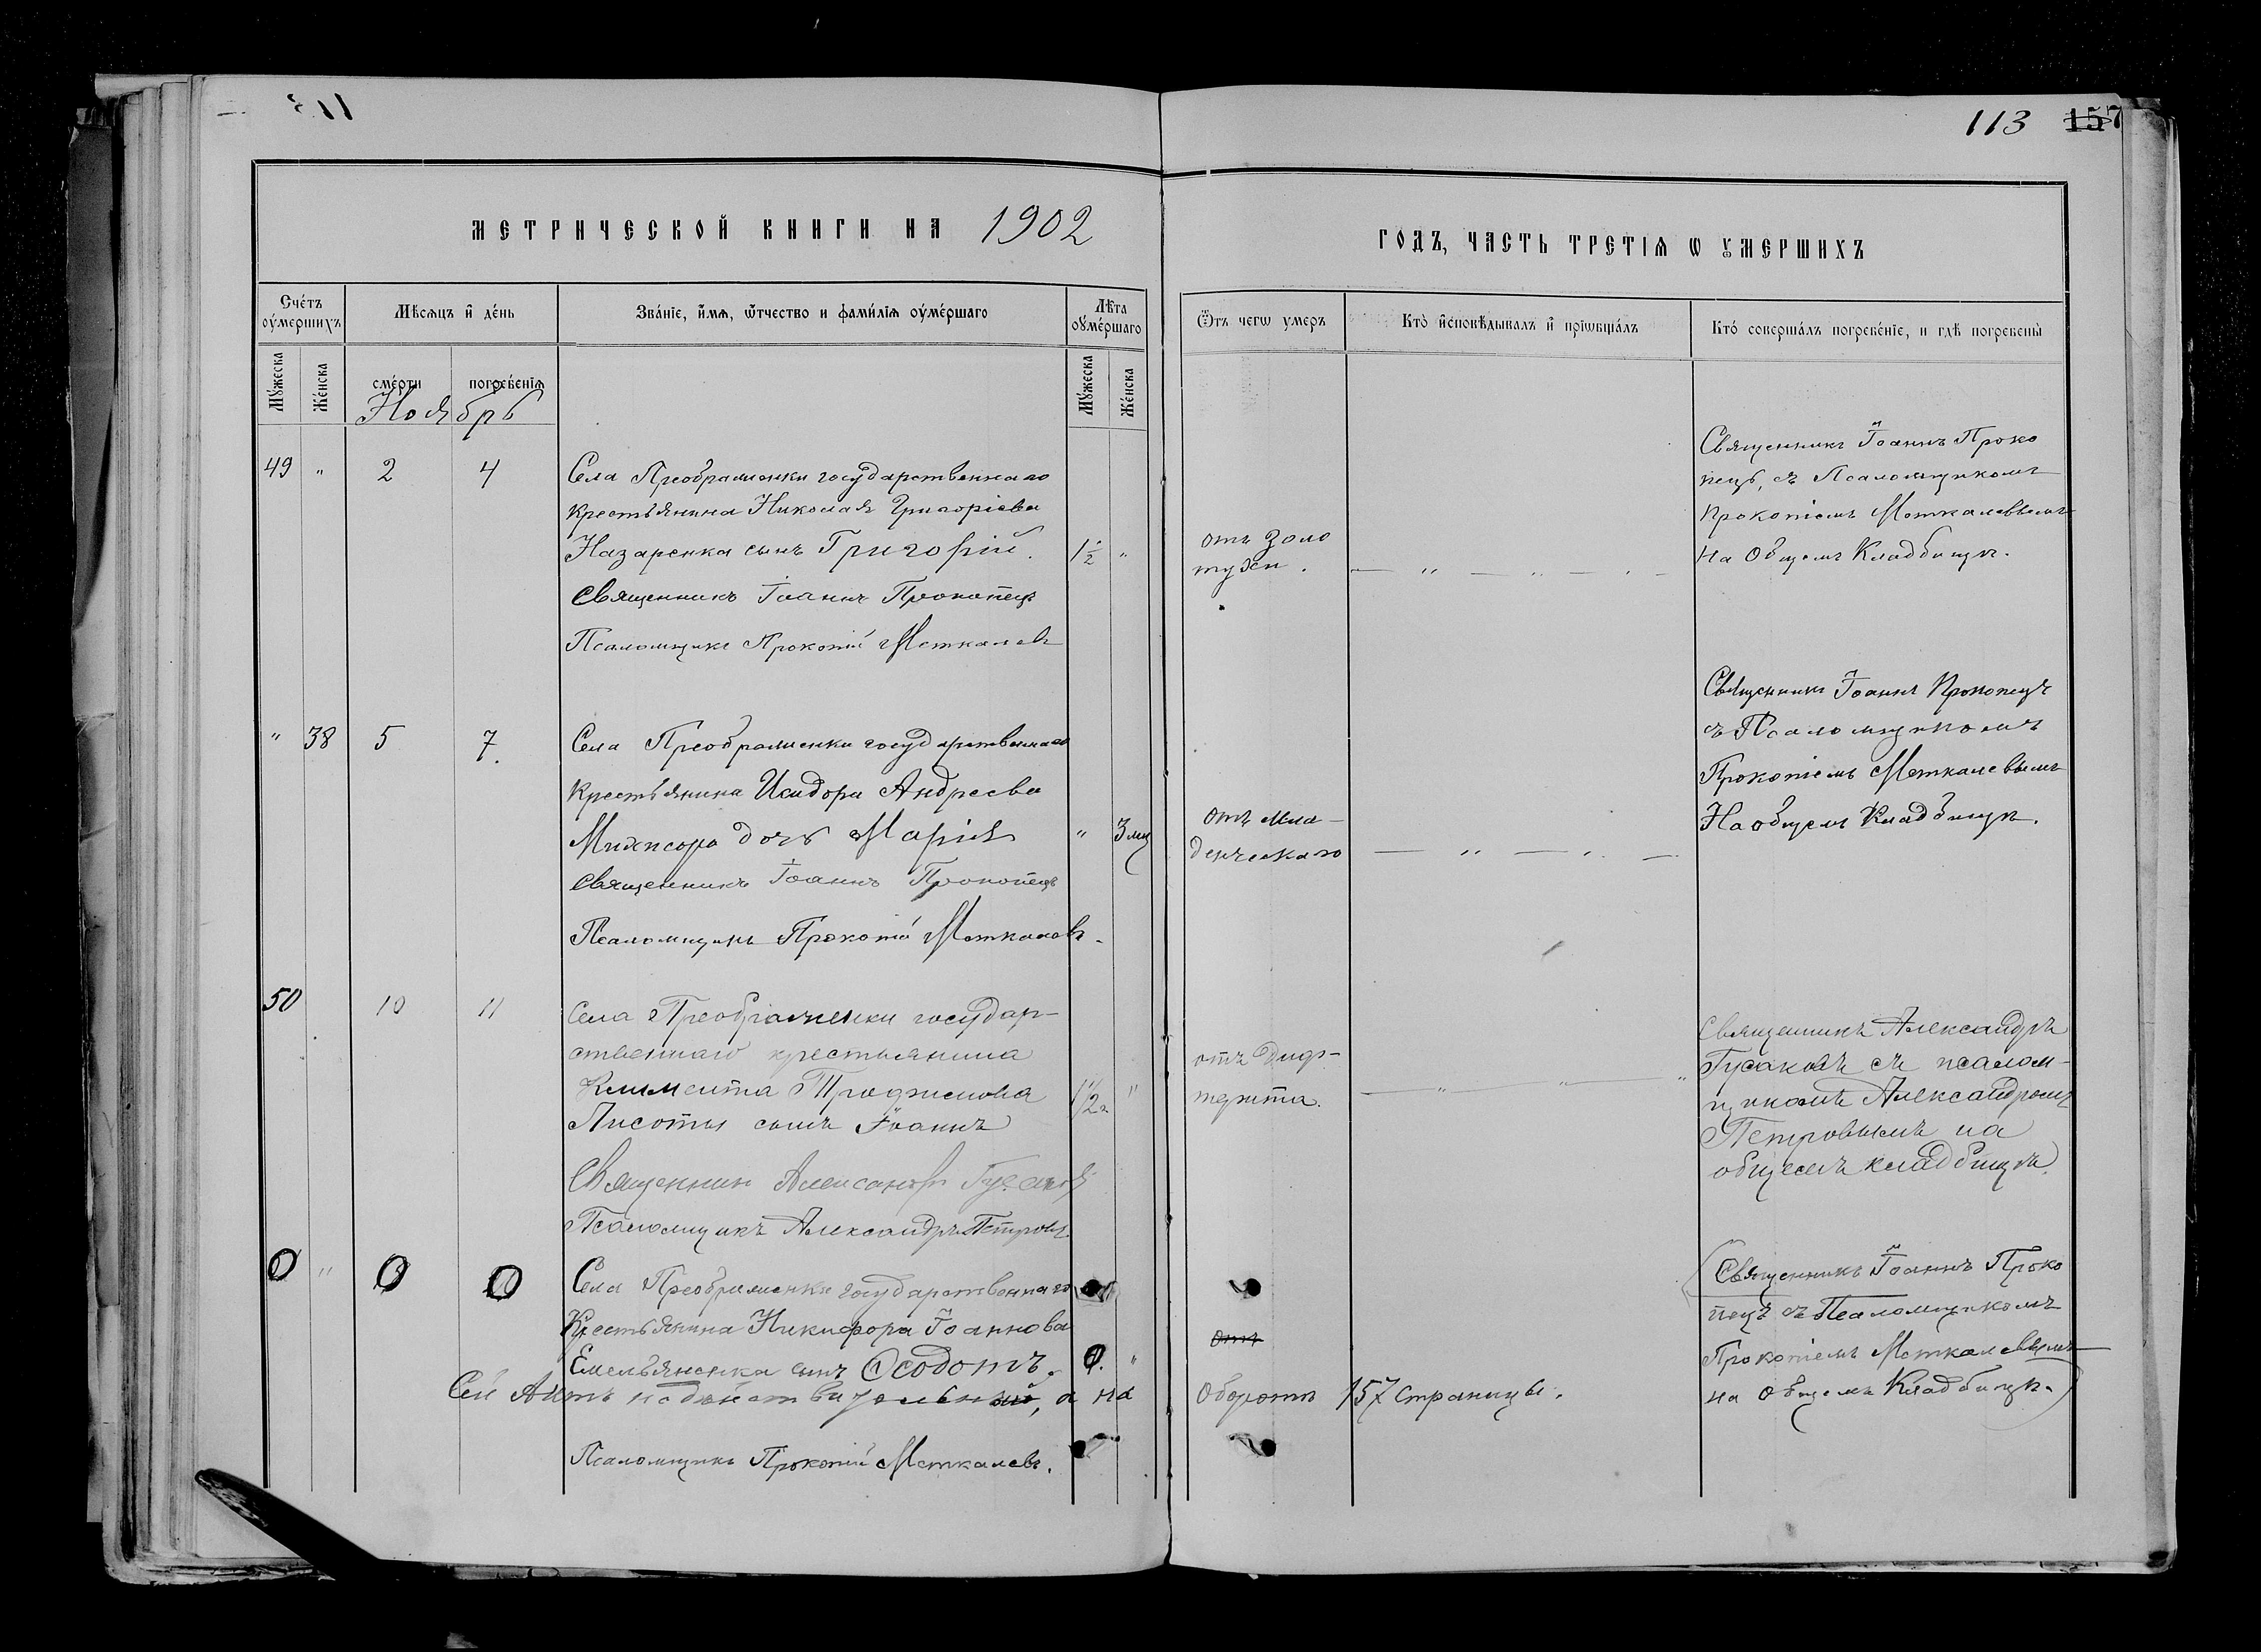 113
113 157
МЕТРИЧЕСКОЙ КНИГИ НА 1902
ГОДЪ, ЧАСТЬ ТРЕТІѦ Ѡ ꙊМЕРШИХЪ
Сче́тъ оу҆ме́ршихъ
Мѣсѧцъ и҆ де́нь
Зва́нїе, и҆́мѧ, ѻ҆́тчество и фами́лїѧ оу҆ме́ршаго
Лѣ̑та оу҆ме́ршаго
Ѿ чегѡ̀ умеръ
Кто̀ и҆сповѣ́дывалъ и҆ прїѡбща́лъ
Кто́ соверша́лъ погребе́нїе, и гдѣ̀ погребены̀
Мꙋ́жеска
Же́нска
сме́рти
погребе́нїѧ
Мꙋ́жеска
Же́нска
Ноябрь
49 " 2 4
Села Преображенки государственнаго
крестьянина Николая Григоріева
Назаренка сынъ Григорій.
Священникъ Іоаннъ Прокопецъ
Псаломщикъ Прокопій Меткалевъ
1 1/2 "
отъ золо
тухи.
— " — " — " —
Священникъ Іоаннъ Проко
пецъ, съ Псаломщикомъ
Прокопіемъ Меткалевымъ
на Общемъ Кладбищѣ.
" 38 5 7.
Села Преображенки государственнаго
крестьянина Исидора Андреева
дочь Марія
Священникъ Іоаннъ Прокопецъ
Псаломщикъ Прокопій Меткалевъ.
" 3 мц
отъ мла-
денческаго
— " — " —
Священникъ Іоаннъ Прокопецъ
съ Псаломщикомъ
Прокопіемъ Меткалевымъ
На общемъ Кладбищѣ.
50 10 11
Села Преображенки государ-
ственнаго крестьянина
Климента Трофимова
Лисоты сынъ Іоаннъ
Священник Александръ Гусаковъ
Псаломщикъ Александръ Петровъ
1 1/2 г. "
отъ Диф-
терита.
— " — " — "
Священникъ Александръ
Гусаковъ съ псалом-
щикомъ Александромъ
Петровымъ на
общемъ кладбищѣ.
0 " 0 0
Села Преображенки государственнаго
Крестьянина Никифора Іоаннова
Емельяненка сынъ Ѳеодотъ.
"
отъ
Сей Актъ недѣйствительный, а на оборотѣ 157 страницы.
Псаломщикъ Прокопій Меткалевъ.
(Священникъ Іоаннъ Проко
пецъ съ Псаломщикомъ
Прокопіемъ Меткалевымъ
на общемъ Кладбищѣ.)